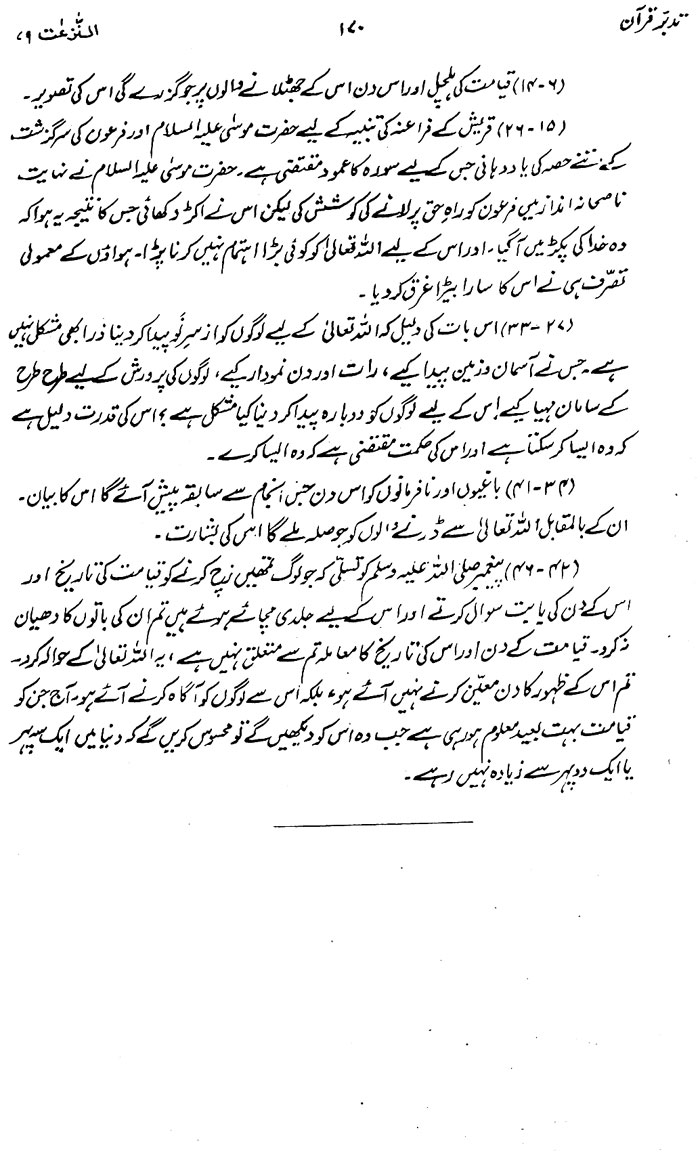 تدبرِ قرآن ۱۷۰ النّٰزعٰت ۷۹
(۶-۱۴) قیامت کی ہلچل اور اس دن اس کے جھٹلانے والوں پر جو گزرے گی اس کی تصویر۔
(۱۵-۲۶) قریش کے فراعنہ کی تنبیہ کے لیے حضرت موسیٰ علیہ السلام اور فرعون کی سرگزشت
کے اتنے حصہ کی یاددہانی جس کے لیے سورہ کا عمود مقتضی ہے۔ حضرت موسیٰ علیہ السلام نے نہایت
ناصحانہ انداز میں فرعون کو راہِ حق پر لانے کی کوشش کی لیکن اس نے اکڑ دکھائی جس کا نتیجہ یہ ہوا کہ
وہ خدا کی پکڑ میں آ گیا۔ اور اس کے لیے اللہ تعالیٰ کو کوئی بڑا اہتمام نہیں کرنا پڑا۔ ہواؤں کے معمولی
تصرّف ہی نے اس کا سارا بیڑا غرق کر دیا۔
(۲۷-۳۳) اس بات کی دلیل کہ اللہ تعالیٰ کے لیے لوگوں کو از سرِ نَو پیدا کر دینا ذرا بھی مشکل نہیں
ہے۔ جس نے آسمان و زمین پیدا کیے، رات اور دن نمودار کیے، لوگوں کی پرورش کے لیے طرح طرح
کے سامان مہیا کیے اس کے لیے لوگوں کو دوبارہ پیدا کر دینا کیا مشکل ہے؟ اس کی قدرت دلیل ہے
کہ وہ ایسا کر سکتا ہے اور اس کی حکمت مقتضی ہے کہ وہ ایسا کرے۔
(۳۴-۴۱) باغیوں اور نافرمانوں کو اس دن جس انجام سے سابقہ پیش آئے گا اس کا بیان۔
ان کے بالمقابل اللہ تعالیٰ سے ڈرنے والوں کو جو صلہ ملے گا اس کی بشارت۔
(۴۲-۴۶) پیغمبر صلی اللہ علیہ وسلم کو تسلّی کہ جو لوگ تمھیں زچ کرنے کو قیامت کی تاریخ اور
اس کے دن کی بابت سوال کرتے اور اس کے لیے جلدی مچائے ہوئے ہیں تم ان کی باتوں کا دھیان
نہ کرو۔ قیامت کے دن اور اس کی تاریخ کا معاملہ تم سے متعلق نہیں ہے، یہ اللہ تعالیٰ کے حوالہ کرو۔
تم اس کے ظہور کا دن معیّن کرنے نہیں آئے ہو، بلکہ اس سے لوگوں کو آگاہ کرنے آئے ہو۔ آج جن کو
قیامت بہت بعید معلوم ہو رہی ہے جب وہ اس کو دیکھیں گے تو محسوس کریں گے کہ دنیا میں ایک سہ پہر
یا ایک دوپہر سے زیادہ نہیں رہے۔